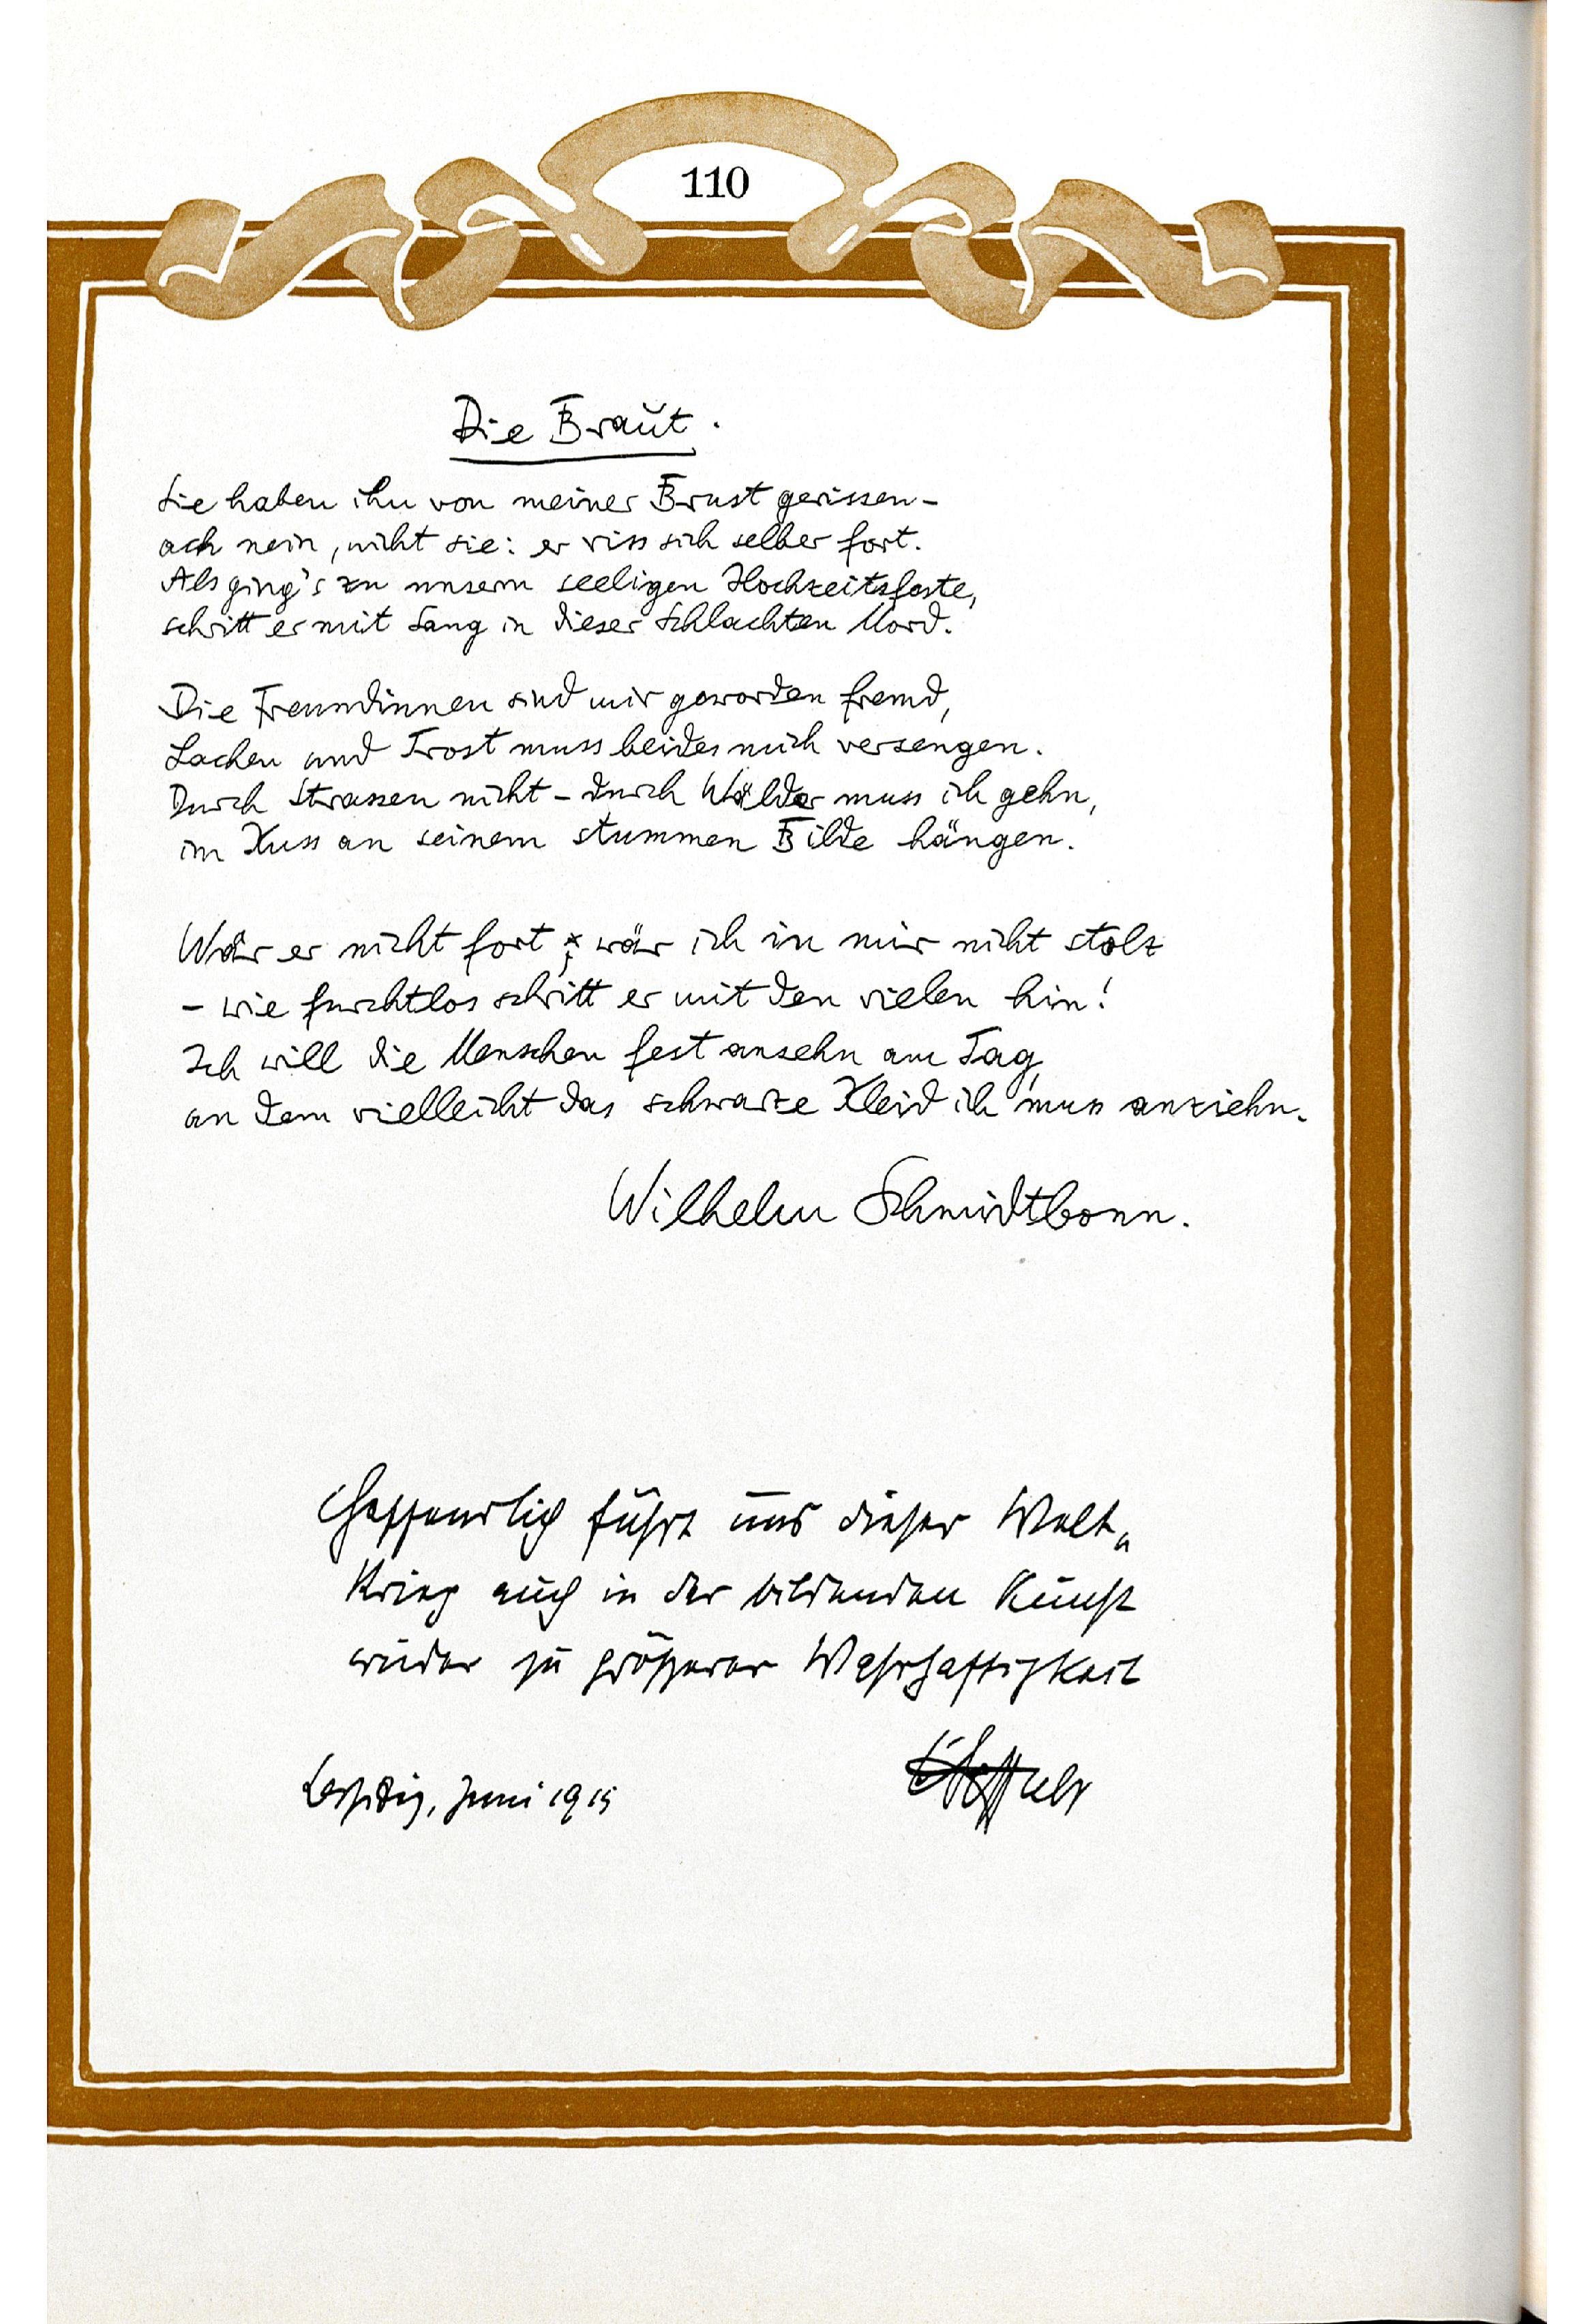 110
Die Braut.
Sie haben ihn von meiner Brust gerissen –
ach nein, nicht sie: er riss sich selber fort.
Als ging's zu unserm seeligen Hochzeitsfeste,
schritt er mit Sang in dieser Schlachten Mord.
Die Freundinnen sind mir geworden fremd,
Lachen und Trost muss beides mich versengen.
Durch Strassen nicht – durch Wälder muss ich gehn,
im Kuss an seinem stummen Bilde hängen.
Wär er nicht fort; wär ich in mir nicht stolz
– wie furchtlos schritt er mit den vielen hin!
Ich will die Menschen fest ansehn am Tag,
an dem vielleicht das schwarze Kleid ich muss anziehn.
Wilhelm Schmidtbonn.
Hoffentlich führt uns dieser Welt„
Krieg auch in der bildenden Kunst
wieder zu größerer Wahrhaftigkeit
Leipzig, Juni 1915